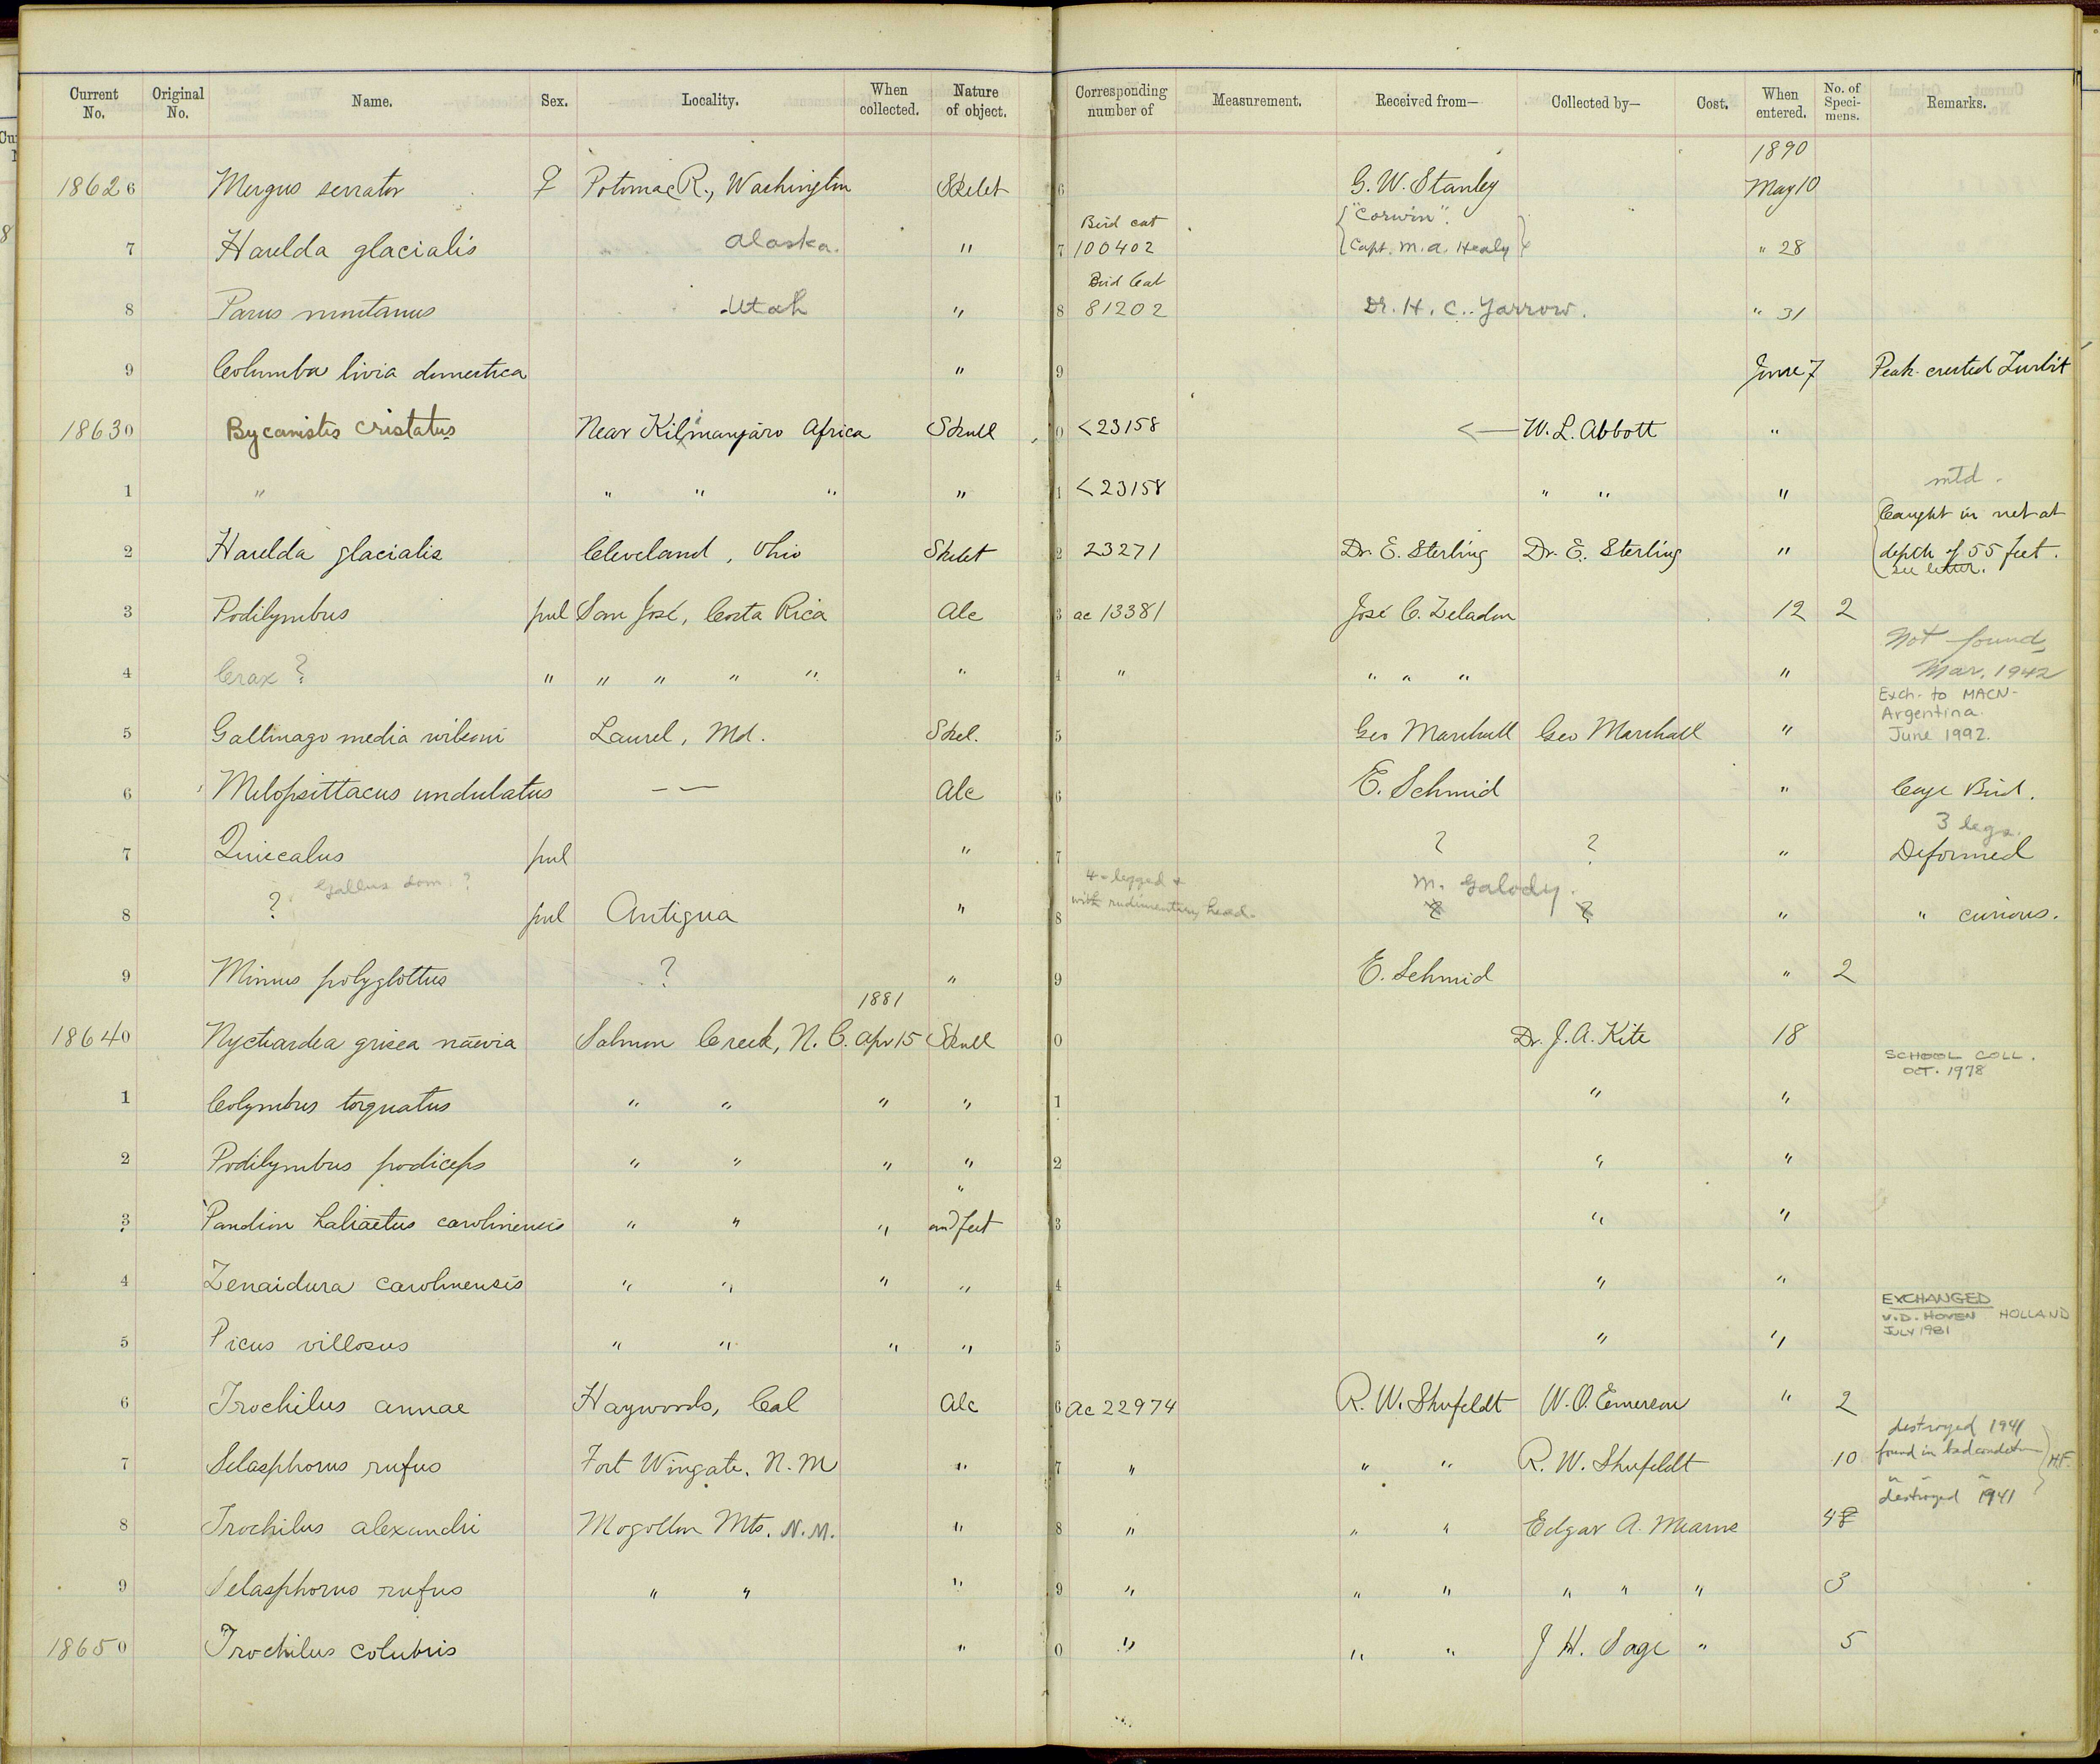 Current No. Original No. Name. Sex. Locality. When collected. Nature of object. Corresponding number of Measurement. Received from— Collected by— Cost. When entered. No. of Speci-mens. Remarks.
1890
18626 Mergus serrator ♀ Potomac R., Washington Skelet 6 G. W. Stanley May 10
Bird cat "Corwin".
7 Harelda glacialis Alaska. " 7 100402 Capt. M. A. Healy " 28
Bird Cat
8 Parus montanus Utah " 8 81202 Dr. H. C. Yarrow. " 31
9 Columba livia domestica " 9 June 7 Peak-crested Turbit
18630 Bycanistes cristatus Near Kilimanjaro Africa Skull 0 <23158 <— W. L. Abbott "
mtd.
1 " " " " " 1 <23158 " " "
Caught in net at
2 Harelda glacialis Cleveland, Ohio Skelet 2 23271 Dr. E. Sterling Dr. E. Sterling " depth of 55 feet.
see letter.
3 Podilymbus pul San José, Costa Rica Alc 3 ac 13381 José C. Zeledon 12 2
Not found,
4 Crax ? " " " " " " 4 " " " " " Mar. 1942
Exch. to MACN-
Argentina.
5 Gallinago media wilsoni Laurel, Md. Skel. 5 Geo Marshall Geo Marshall " June 1992.
6 Melopsittacus undulatus — — Alc 6 E. Schmid " Cage Bird.
3 legs.
7 Quiscalus pul " 7 ? ? " Deformed
Gallus dom. ? 4-legged + M. Galody.
with rudimentary head.
8 ? pul Antigua " 8 ? ? " " curious.
9 Mimus polyglottus ? " 9 E. Schmid " 2
1881
18640 Nycteardea grisea nævia Salmon Creek, N. C. Apr 15 Skull 0 Dr. J. A. Kite 18
SCHOOL COLL.
OCT. 1978
1 Colymbus torquatus " " " " 1 " "
2 Podilymbus podiceps " " " " 2 " "
"
3 Pandion haliaetus carolinensis " " " and feet 3 " "
4 Zenaidura carolinensis " " " " 4 " "
EXCHANGED
V.D. HOVEN HOLLAND
JULY 1981
5 Picus villosus " " " " 5 " "
6 Trochilus annae Haywards, Cal Alc 6 Ac 22974 R. W. Shufeldt W. O. Emerson " 2
destroyed 1941
found in bad condition
7 Selasphorus rufus Fort Wingate, N. M " 7 " " " R. W. Shufeldt 10 H.F.
" " "
destroyed 1941
8 Trochilus alexandri Mogollon Mts. N. M. " 8 " " " Edgar A. Mearns 48
9 Selasphorus rufus " " " 9 " " " " " " 3
18650 Trochilus colubris " 0 " " " J H. Sage " 5